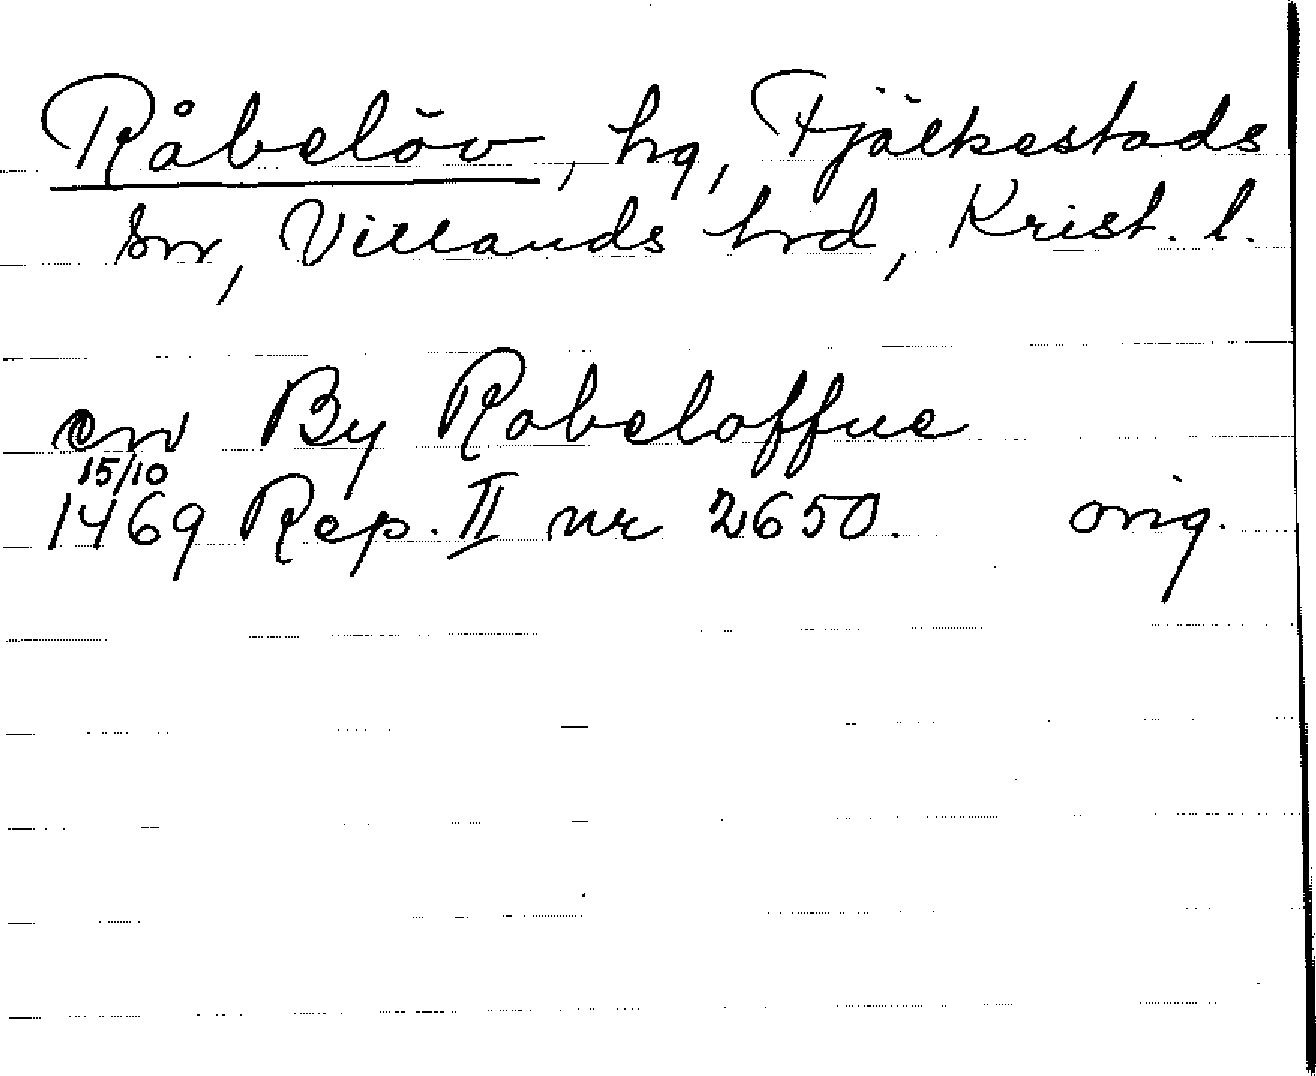 Råbelöv, hg, Fjälkestads
sn, Villands hrd, Krist. l.
en By Robeloffue
15/10
1469 Rep. II nr 2650. orig.